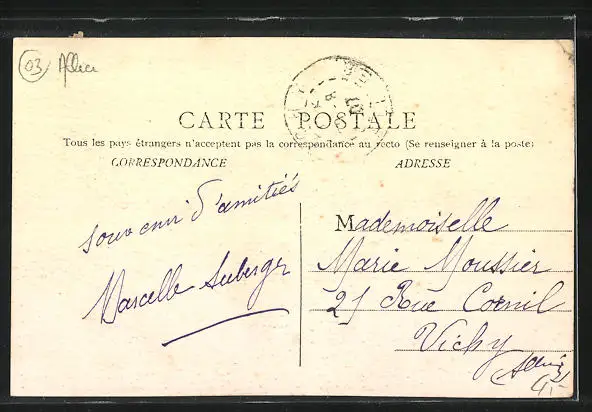 03 Allier
CARTE POSTALE
Tous les pays étrangers n'acceptent pas la correspondance au recto (Se renseigner à la poste)
CORRESPONDANCE
ADRESSE
souvenir d'amitiés
Marcelle Auberger
Mademoiselle
Marie Moussier
25 Rue Cornil
Vichy
(Allier)